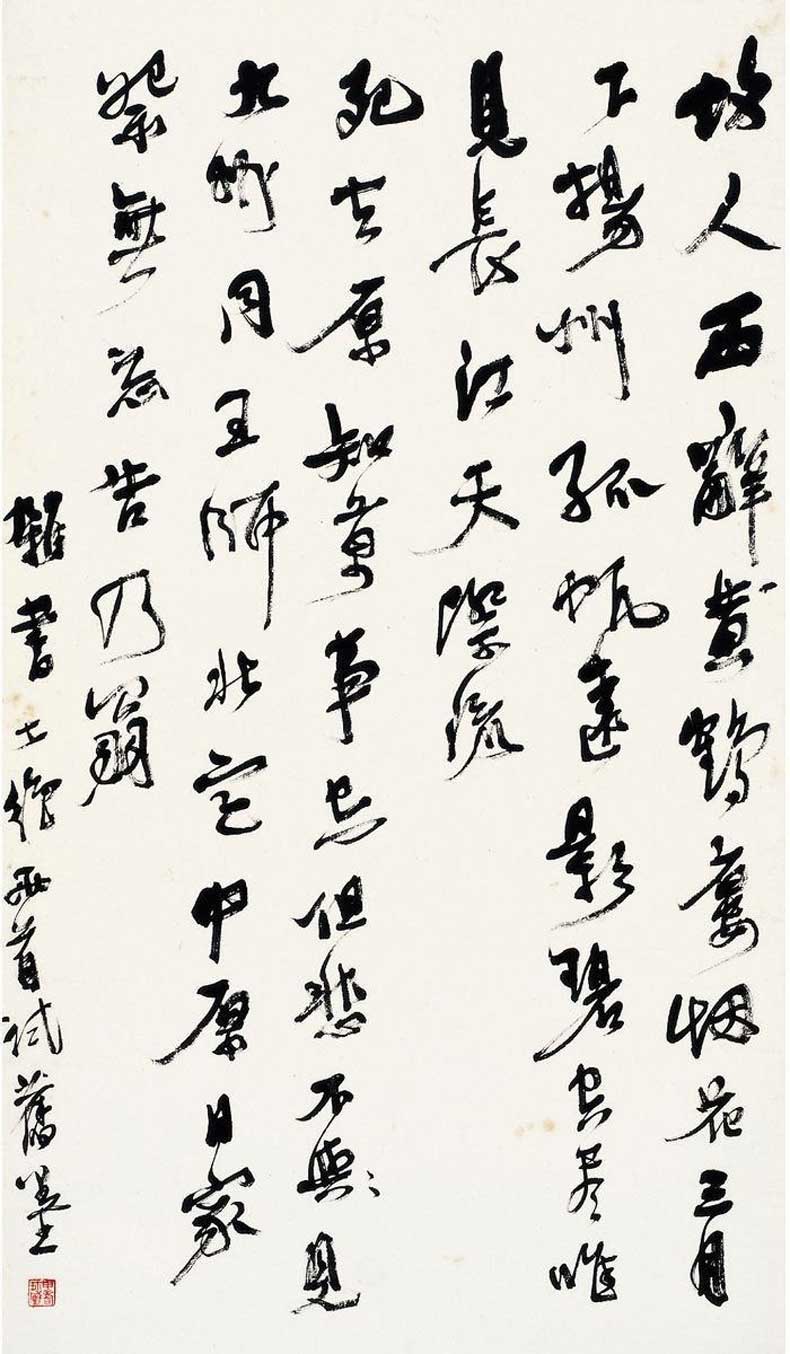 故人西辭黃鶴樓烟花三月
下揚州孤帆遠影碧空盡唯
見長江天際流
死去原知萬事空但悲不與見
九州同王師北定中原日家
祭無忘告乃翁
雜書七絕兩首試舊墨